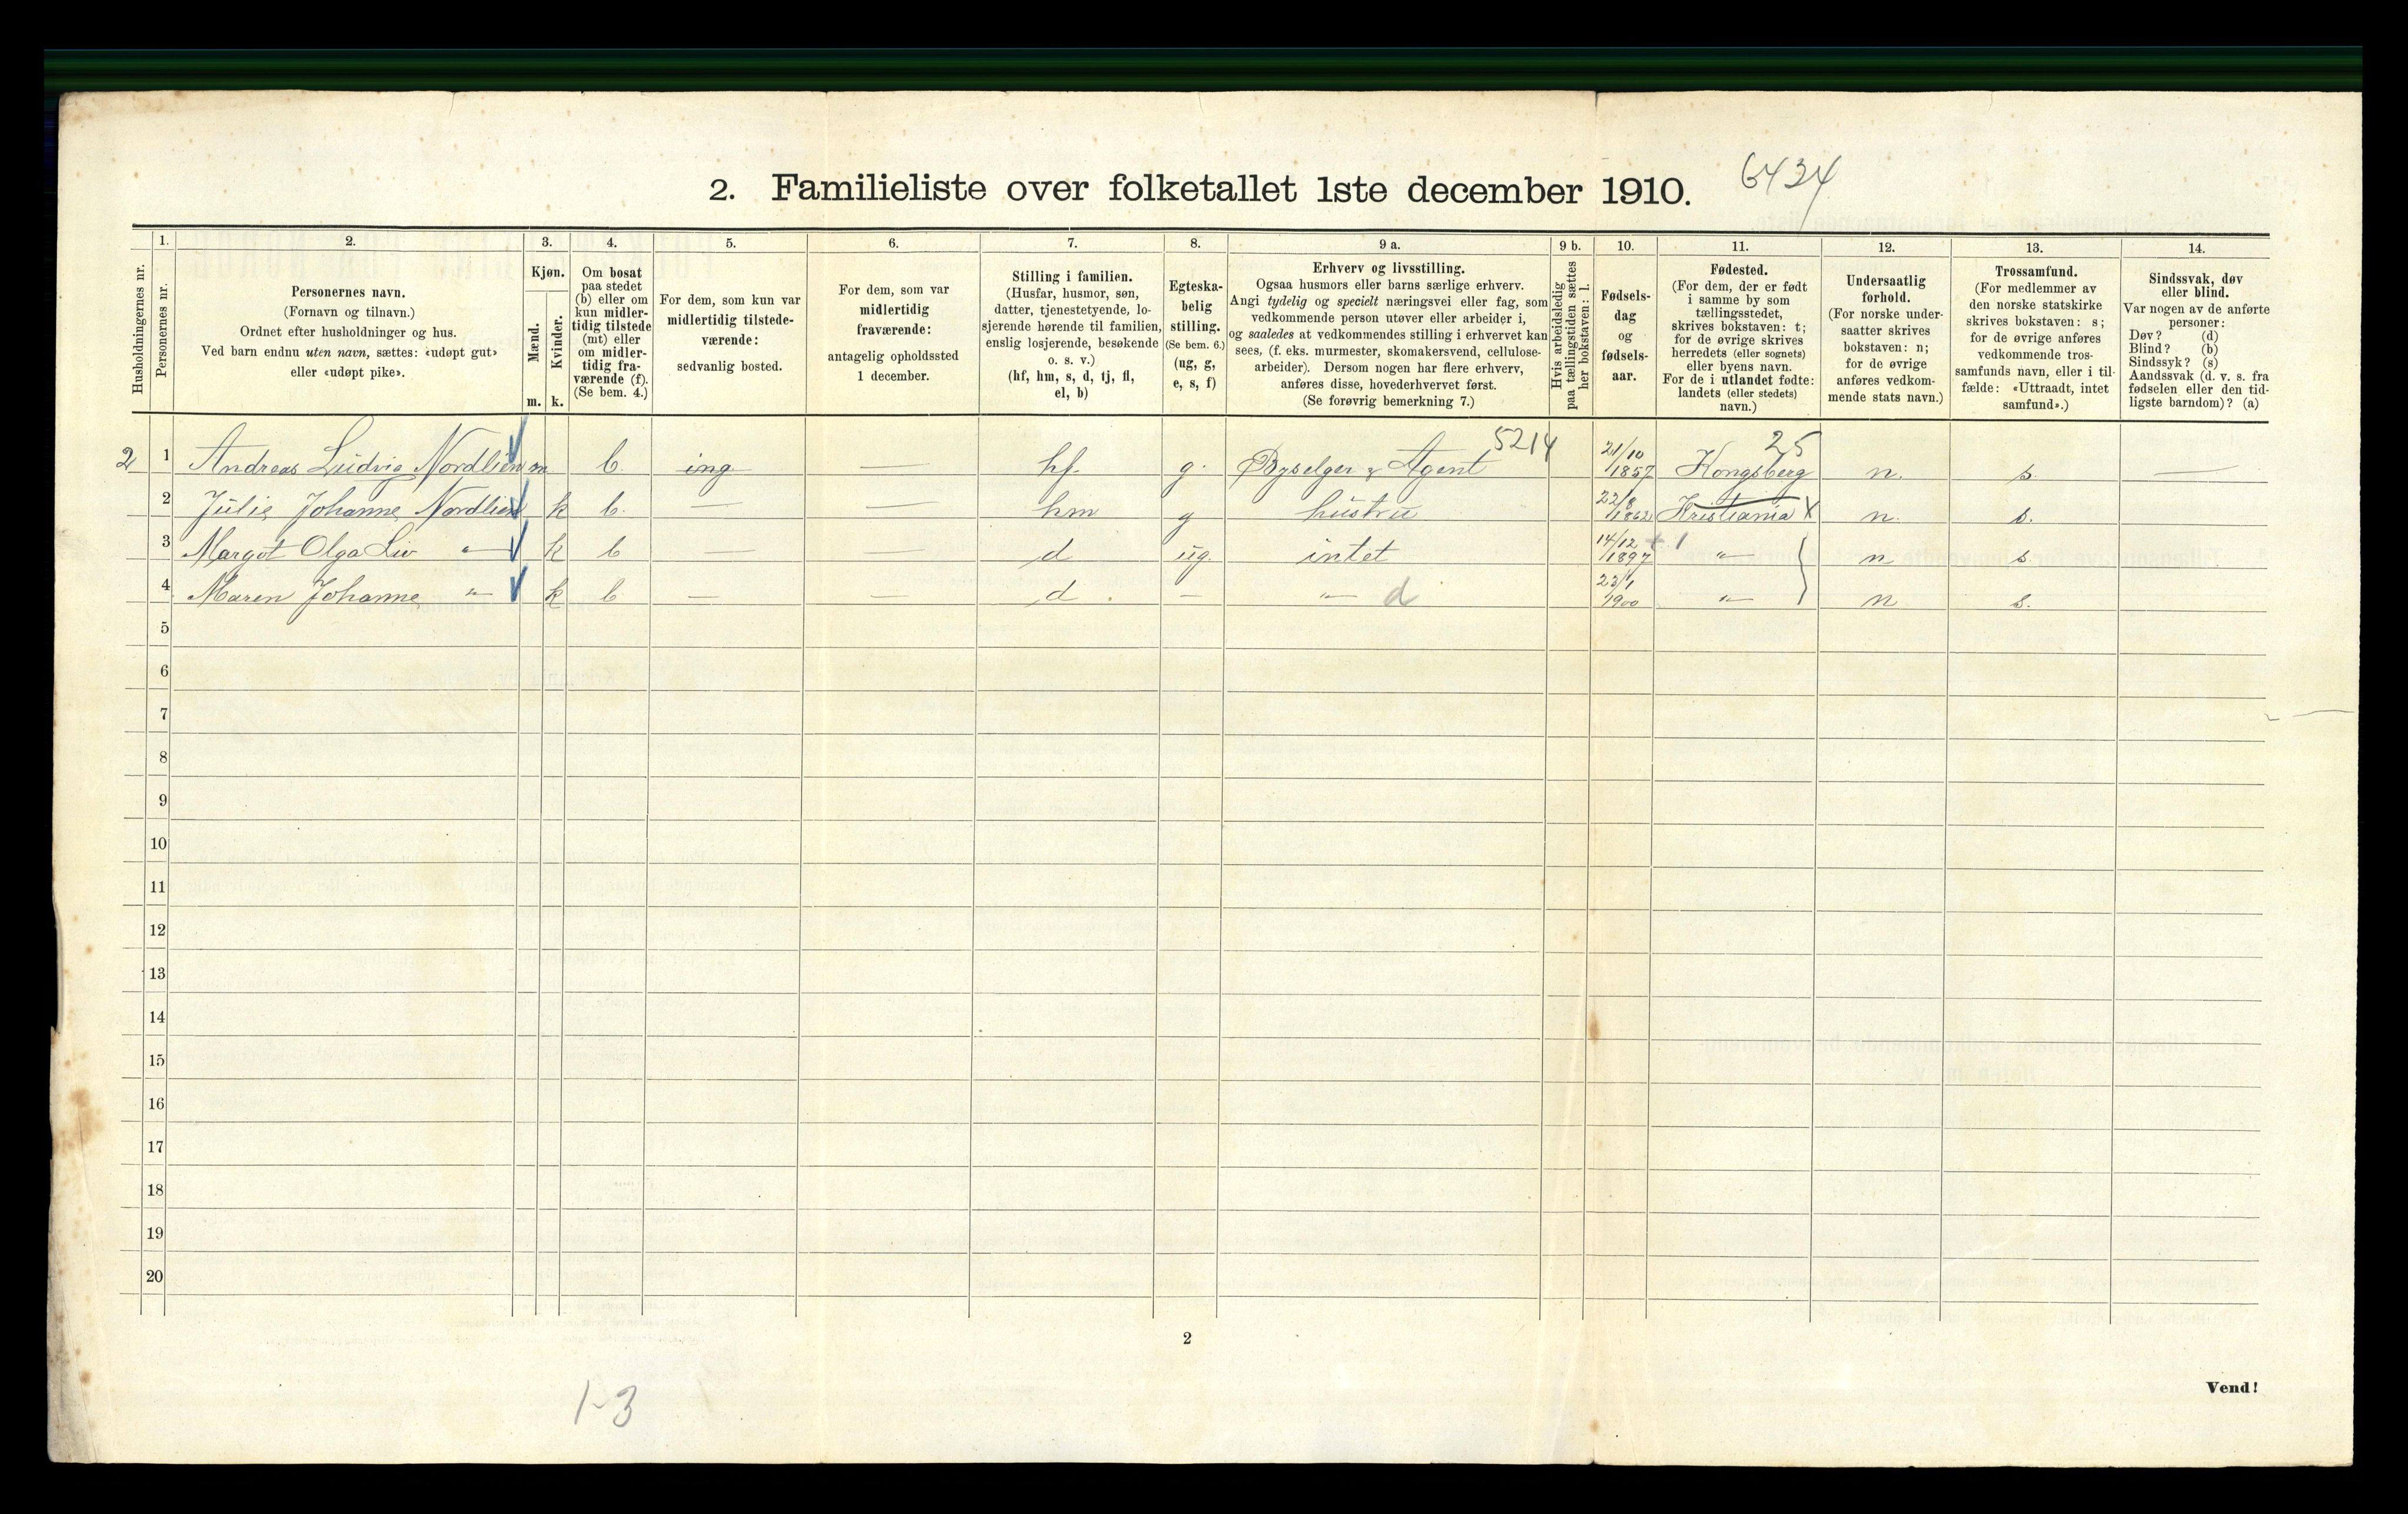 2. Familieliste over folketallet 1ste december 1910. 6434
Husholdningernes nr.
1.
Personernes nr.
2.
Personernes navn.
(Fornavn og tilnavn.)
Ordnet efter husholdninger og hus.
Ved barn endnu uten navn, sættes: «udøpt gut»
eller «udøpt pike».
3.
Kjøn.
Mænd.
Kvinder.
m. k.
4.
Om bosat
paa stedet
(b) eller om
kun midler-
tidig tilstede
(mt) eller
om midler-
tidig fra-
værende (f).
(Se bem. 4.)
5.
For dem, som kun var
midlertidig tilstede-
værende:
sedvanlig bosted.
6.
For dem, som var
midlertidig
fraværende:
antagelig opholdssted
1 december.
7.
Stilling i familien.
(Husfar, husmor, søn,
datter, tjenestetyende, lo-
sjerende hørende til familien,
enslig losjerende, besøkende
o. s. v.)
(hf, hm, s, d, tj, fl,
el, b)
8.
Egteska-
belig
stilling.
(Se bem. 6.)
(ug, g,
e, s, f)
9 a.
Erhverv og livsstilling.
Ogsaa husmors eller barns særlige erhverv.
Angi tydelig og specielt næringsvei eller fag, som
vedkommende person utøver eller arbeider i,
og saaledes at vedkommendes stilling i erhvervet kan
sees, (f. eks. murmester, skomakersvend, cellulose-
arbeider). Dersom nogen har flere erhverv,
anføres disse, hovederhvervet først.
(Se forøvrig bemerkning 7.)
9 b.
Hvis arbeidsledig
paa tællingstiden sættes
her bokstaven: l.
10.
Fødsels-
dag
og
fødsels-
aar.
11.
Fødested.
(For dem, der er født
i samme by som
tællingsstedet,
skrives bokstaven: t;
for de øvrige skrives
herredets (eller sognets)
eller byens navn.
For de i utlandet fødte:
landets (eller stedets)
navn.)
12.
Undersaatlig
forhold.
(For norske under-
saatter skrives
bokstaven: n;
for de øvrige
anføres vedkom-
mende stats navn.)
13.
Trossamfund.
(For medlemmer av
den norske statskirke
skrives bokstaven: s;
for de øvrige anføres
vedkommende tros-
samfunds navn, eller i til-
fælde: «Uttraadt, intet
samfund».)
14.
Sindssvak, døv
eller blind.
Var nogen av de anførte
personer:
Døv? (d)
Blind? (b)
Sindssyk? (s)
Aandssvak (d. v. s. fra
fødselen eller den tid-
ligste barndom)? (a)
5214 25
2 1 Andreas Ludvig Nordlien m b. ing — hf. g. Byselger & Agent 21/10 1857 Kongsberg n. s. —
2 Julie Johanne Nordlien k b. — — hm g hustru 22/8 1862 Kristiania X n. s.
3 Margot Olga Liv " k b — — d ug. intet 14/12 1897 + 1 " n s
4 Maren Johanne " k b — — d. — " d 23/1 1900 " n s.
5
6
7
8
9
10
11
12
13
14
15
16
17
18
19
20
2
1-3
Vend!